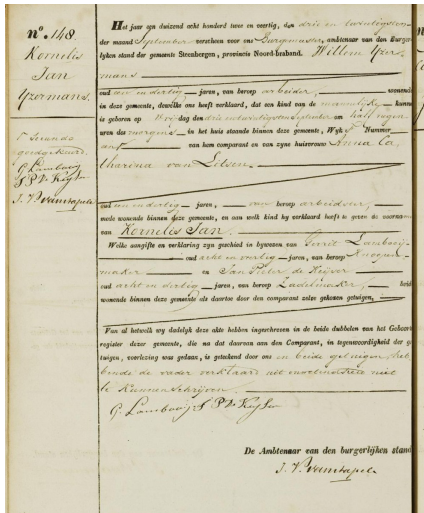 no. 148.
Kornelis
Jan
Yzermans.
goedgekeurd
G. Lambooij
J. P. De Keijser
J. V. van
Het jaar een duizend acht honderd twee en veertig, den drie en twintigsten
der maand September verscheen voor ons Burgemeester, ambtenaar van den Burger
lyken stand der gemeente Steenbergen, provincie Noord-braband. Willem Yzer
mans
oud een en dertig jaren, van beroep arbeider, wonende
in deze gemeente, dewelke ons heeft verklaard, dat een kind van de mannelijke kunne
is geboren op dag den drie en twintigsten September om half negen
uren des morgens in het huis staande binnen deze gemeente, Wyk Nummer
van hem comparant en van zyne huisvrouw Anna Ca
tharina van
oud een en dertig jaren, van beroep arbeidster,
mede wonende binnen deze gemeente, en aan welk kind hy verklaard heeft te geven de voorname
van Kornelis Jan.
Welke aangifte en verklaring zyn geschied in bywezen van Gerrit Lambooij
oud acht en veertig jaren, van beroep Knoopen
maker en Jan Pieter de Keijser
oud acht en dertig jaren, van beroep Zadelmaker, beid
wonende binnen deze gemeente als daartoe door den comparant zelve gekozen getuigen,
Van al hetwelk wy dadelyk deze akte hebben ingeschreven in de beide dubbelen van het Geboort
register dezer gemeente, die na dat daarvan aan den Comparant, in tegenwoordigheid der g
tuigen, voorlezing was gedaan, is geteekend door ons en beide getuigen, heb
bende de vader verklaard uit onvermogen niet
te kunnen schrijven.
G. Lambooij J. P. De Keijser
De Ambtenaar van den burgerlijken stand
J. V. van